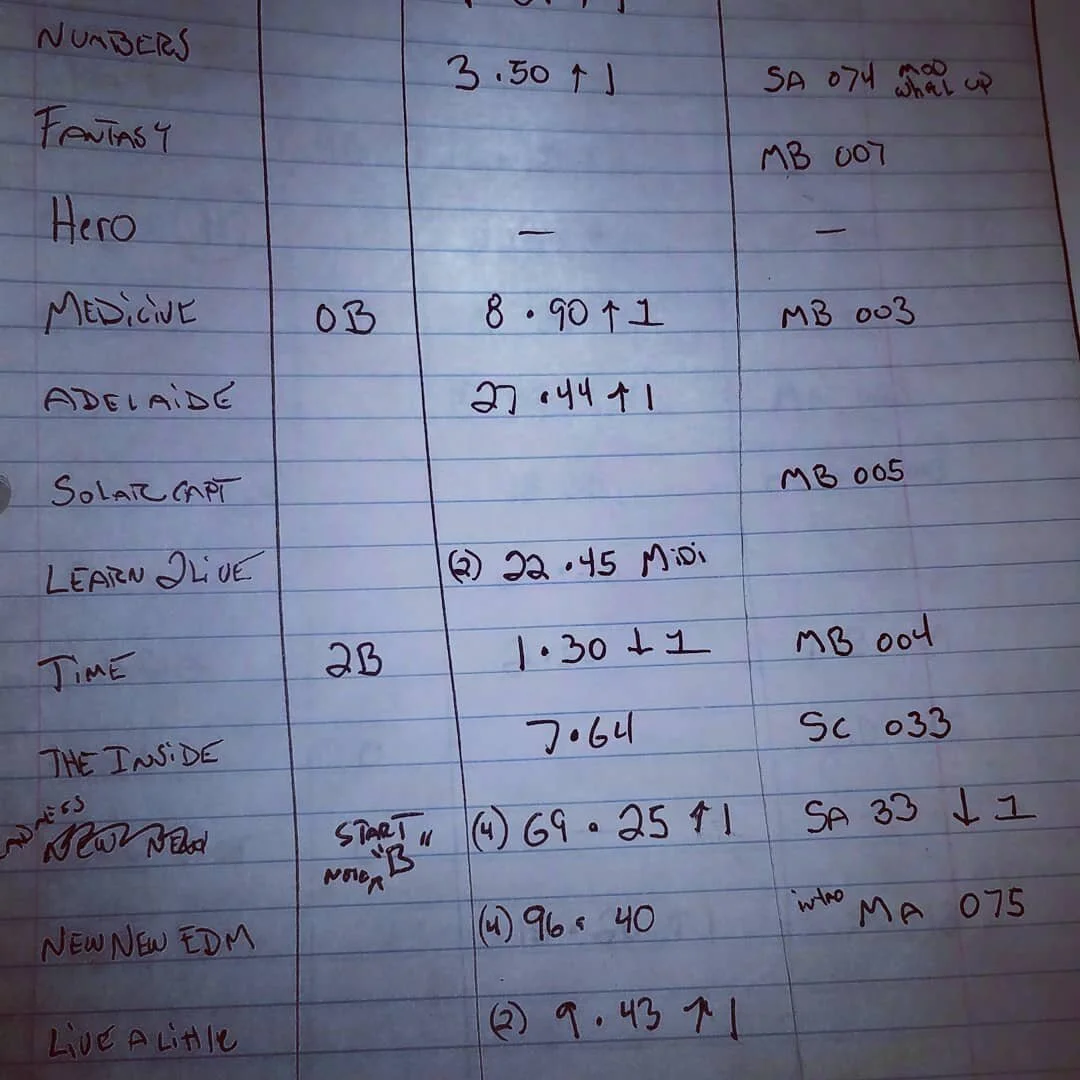 NUMBERS 3 .50 ↑ 1 SA 074 MOD what up
FANTASY MB 007
Hero — —
MEDiCiNE 0B 8 . 90 ↑ 1 MB 003
ADELAiDE 27 .44 ↑ 1
SOLAR CAPT MB 005
LEARN 2LiVE (2) 22 .45 MiDi
TiME 2B 1 . 30 ↓ 1 MB 004
THE INSiDE 7.64 SC 033
START (4) 69 . 25 ↑ 1 SA 33 ↓ 1
NOTE "B"
NEW NEW EDM (4) 96 . 40 intro MA 075
LiVE A Little (2) 9 . 43 ↑ 1